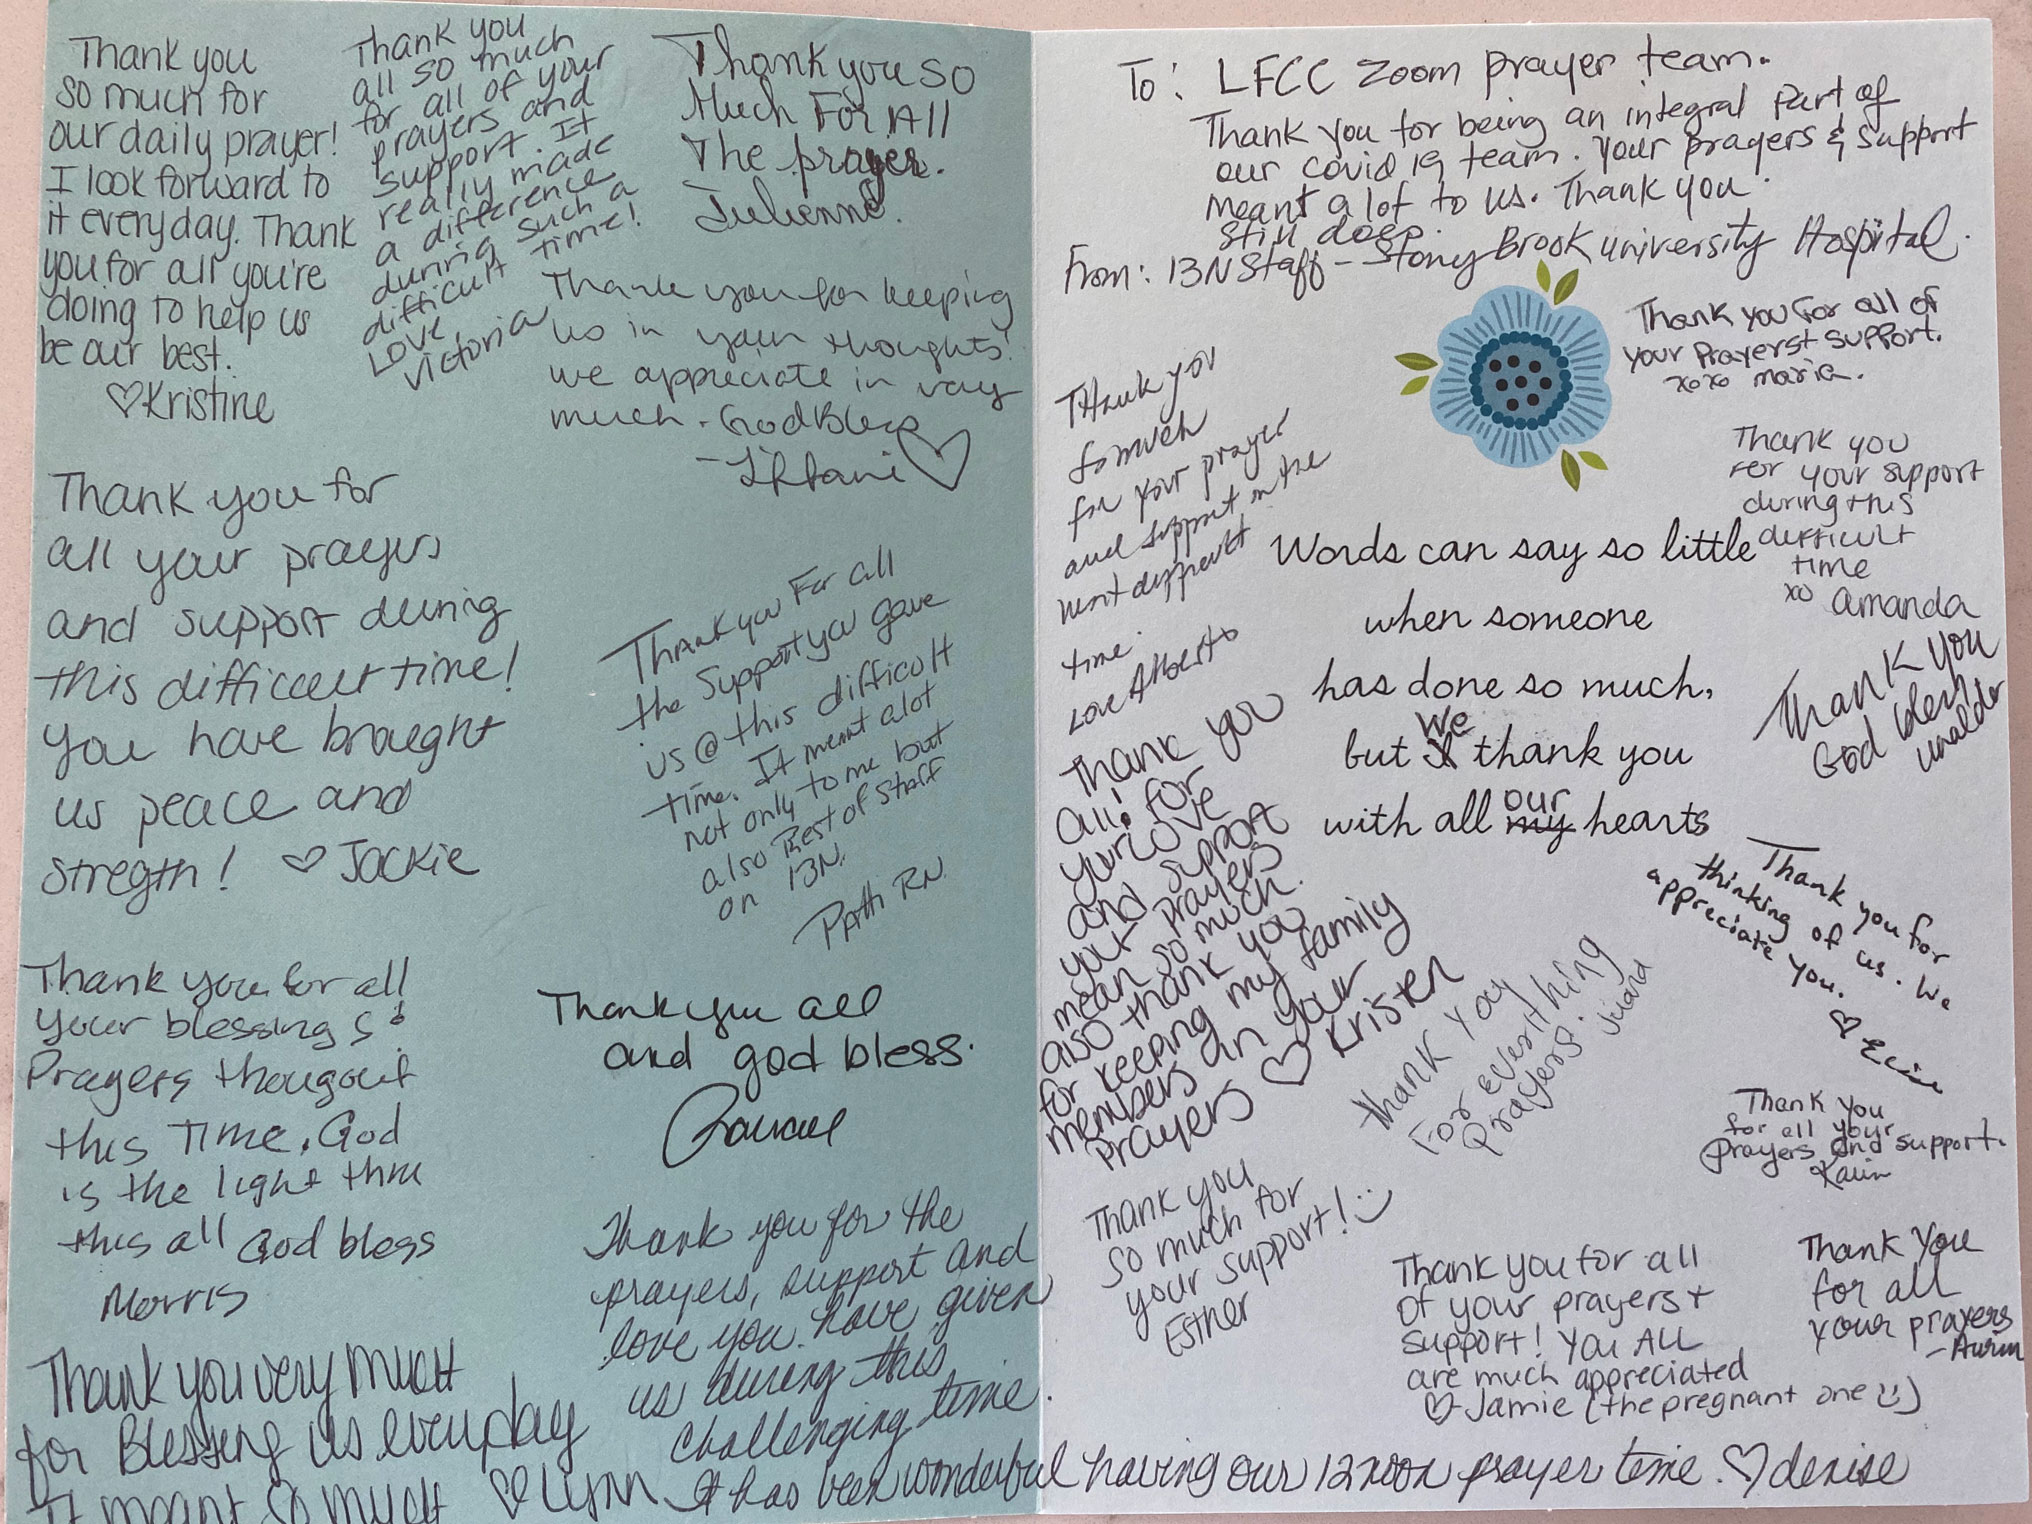 Thank you
so much for
our daily prayer!
I look forward to
it everyday. Thank
you for all you're
doing to help us
be our best.
♡Kristine
Thank you
all so much
for all of your
prayers and
support. It
really made
a difference
during such a
difficult time!
Love
Victoria
Thank you so
Much For All
The prayer.
Julienne.
Thank you for keeping
us in your thoughts!
we appreciate in vary
much. God Bless
♡
Thank you for
all your prayers
and support during
this difficult time!
You have brought
us peace and
stregth! ♡ Jackie
Thank you For all
the Support you gave
us @ this difficult
time. It meant alot
not only to me but
also Rest of Staff
on 13N.
Patti RN
Thank you for all
your blessings &
Prayers thougout
this Time. God
is the light thru
this all God bless
Morris
Thank you all
and god bless.
Thank you for the
prayers, support and
love you have given
us during this
challenging time.
It has been wonderful having our 12 noon prayer time. ♡ denise
Thank you very much
for Blessing us everyday
It meant so much ♡ Lynn
To: LFCC Zoom prayer team.
Thank you for being an integral part of
our covid 19 team. Your prayers & support
meant a lot to us. Thank you.
Still does.
From: 13N Staff - Stony Brook University Hospital.
Thank you for all of
your Prayers + support.
xoxo maria.
Thank you
so much
for your prayer
and support in the
most difficult
time.
Love Alberto
Thank you
For your support
during this
difficult
time
xo amanda
Words can say so little
when someone
has done so much,
but I We thank you
with all my our hearts
Thank you
God bless
Thank you
all! for
your love
and support
your prayers
mean so much.
also thank you
for keeping my family
members in your
prayers ♡ Kristen
Thank you for
thinking of us. We
appreciate you.
♡
Thank you
For everithing
Prayers!
Thank you
for all your
prayers and support.
Thank you
so much for
your support! :)
Esther
Thank you for all
of your prayers +
support! You ALL
are much appreciated
♡-Jamie (the pregnant one :))
Thank you
for all
your prayers